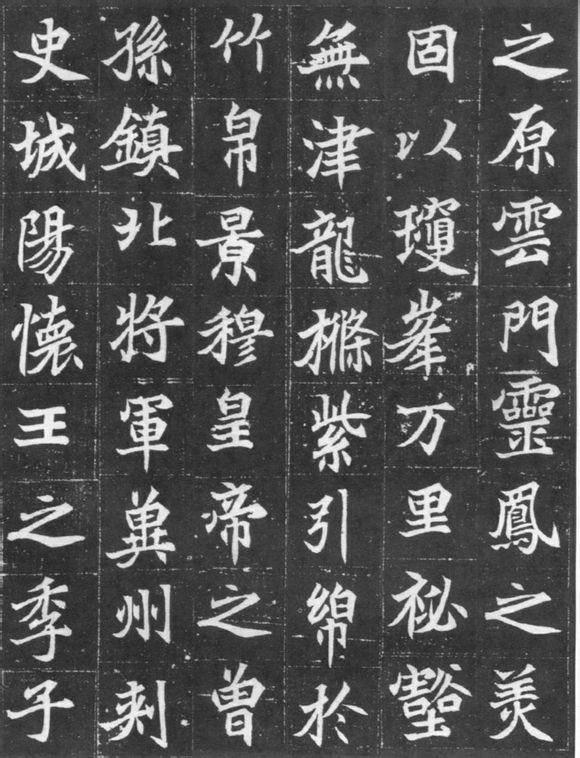 之原雲門靈鳳之羙
固以瓊峯万里祕壑
無津龍樤紫引綿於
竹帛景穆皇帝之曾
孫鎮北将軍兾州刺
史城陽懷王之季子